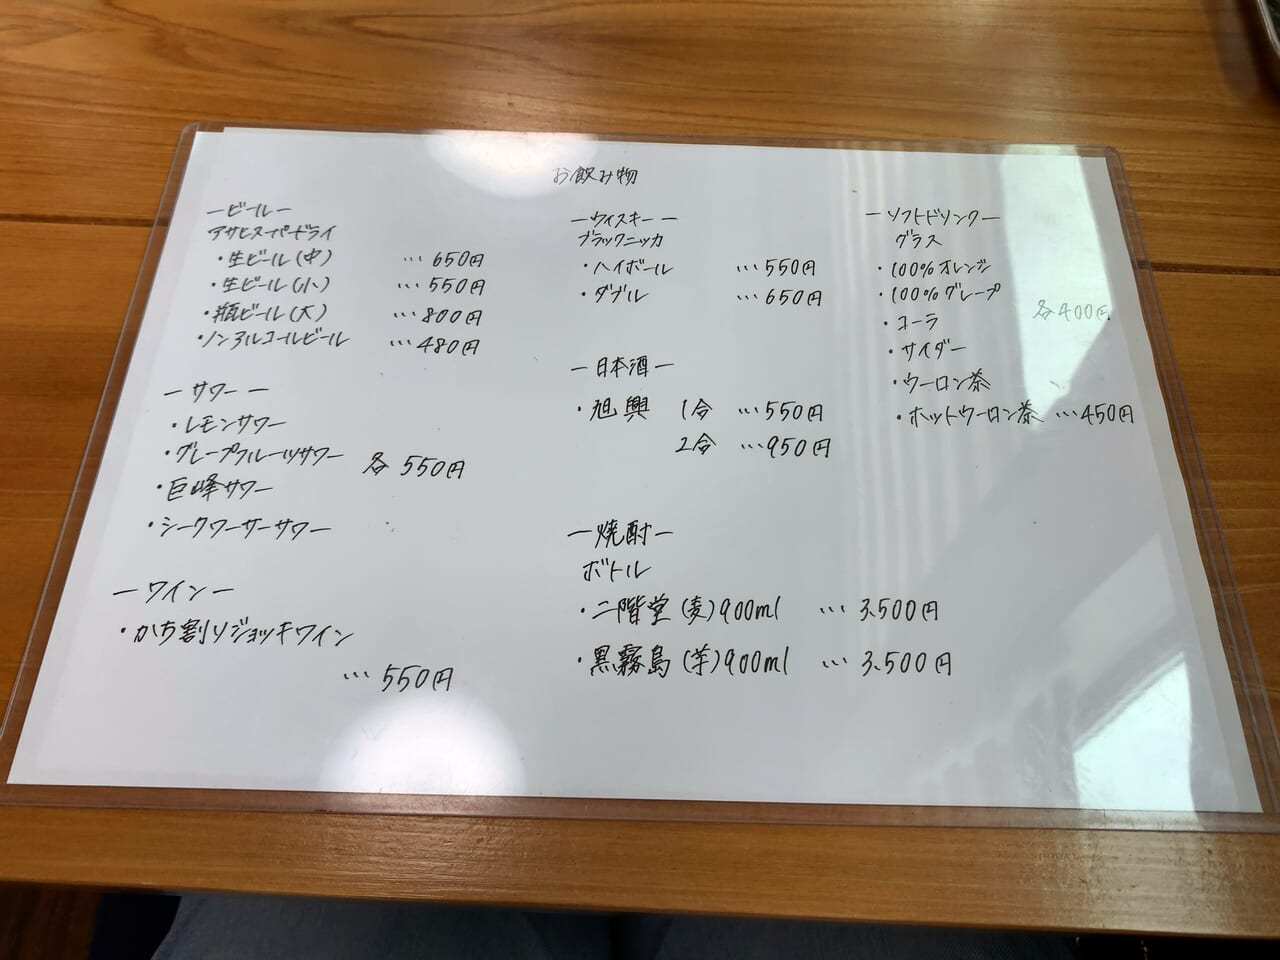 お飲み物
ービールー
アサヒスーパードライ
・生ビール(中) …650円
・生ビール(小) …550円
・瓶ビール(大) …800円
・ノンアルコールビール …480円
ーサワーー
・レモンサワー
・グレープフルーツサワー 各550円
・巨峰サワー
・シークワーサーサワー
ーワインー
・かち割りジョッキワイン
…550円
ーウイスキーー
ブラックニッカ
・ハイボール …550円
・ダブル …650円
ー日本酒ー
・旭興 1合 …550円
2合 …950円
ー焼酎ー
ボトル
・二階堂(麦)900ml …3.500円
・黒霧島(芋)900ml …3.500円
ーソフトドリンクー
グラス
・100%オレンジ
・100%グレープ
・コーラ 各400円
・サイダー
・ウーロン茶
・ホットウーロン茶 …450円